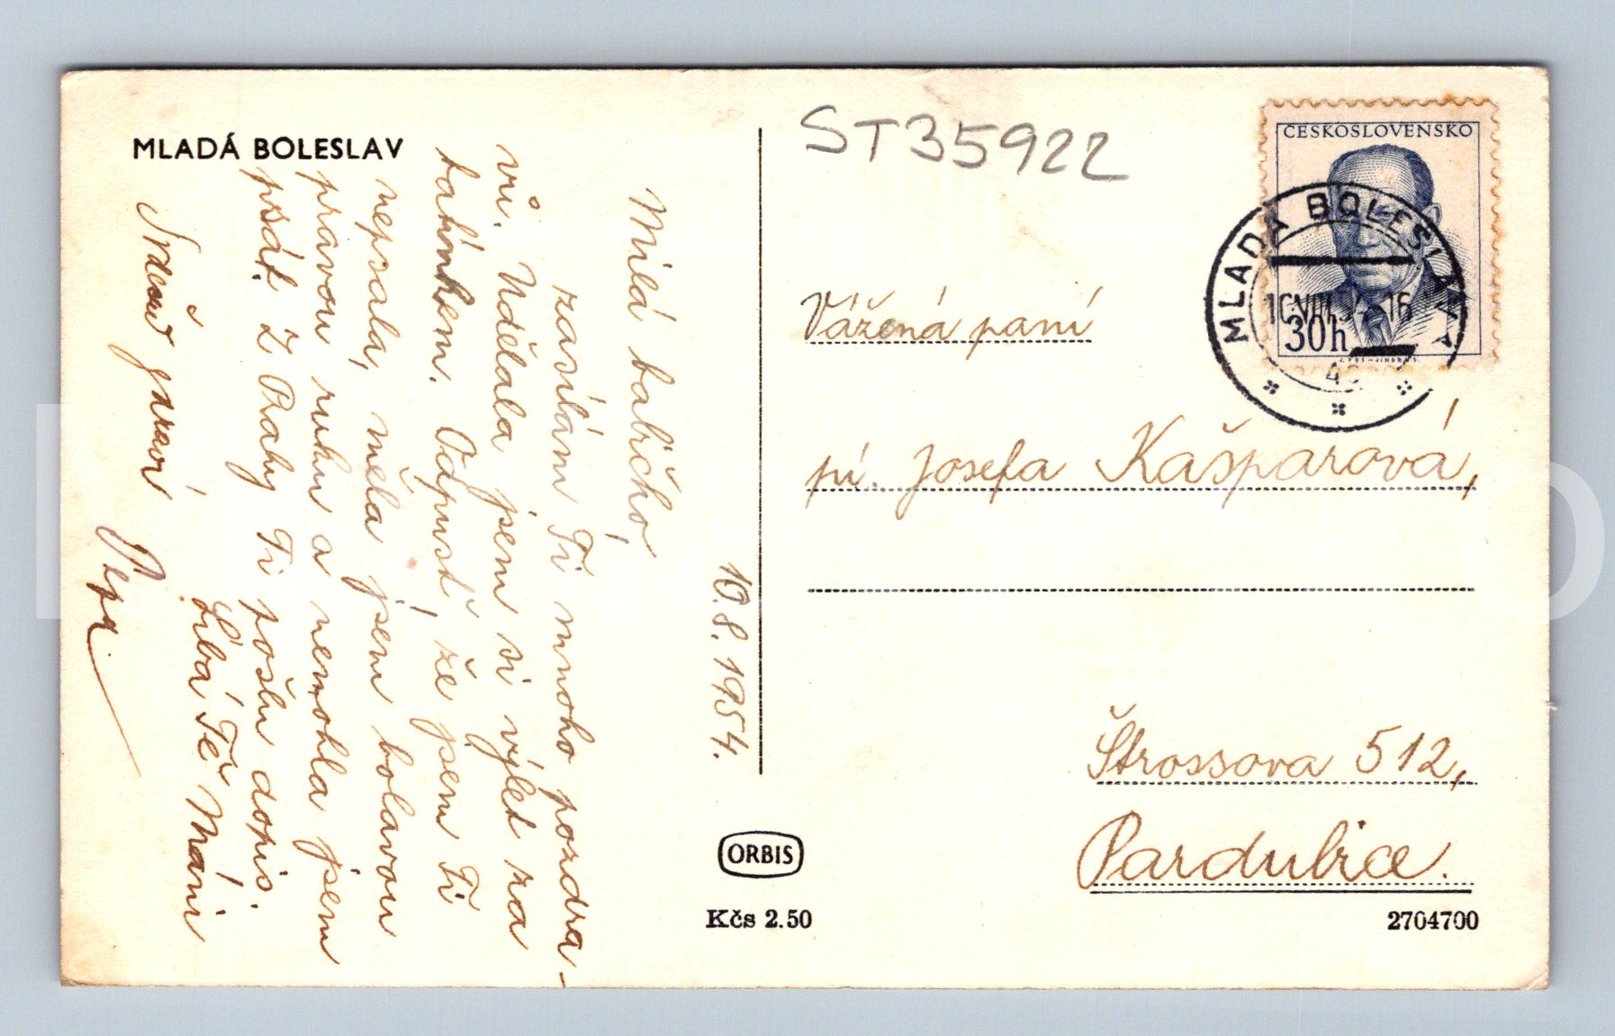 MLADÁ BOLESLAV
ST35922
ČESKOSLOVENSKO
MLADÁ BOLESLAV
10.VIII.54-16
30h
10.8.1954.
Milá babičko,
zasílám Ti mnoho pozdra-
vů. Udělala jsem si výlet za
tatínkem. Odpusť, že jsem Ti
nepsala, měla jsem bolavou
pravou ruku a nemohla jsem
psát. Z Prahy Ti pošlu dopis.
Líbá Tě Máni
Srdečně zdraví
Pepa
Vážená paní
pí. Josefa Kašparová,
Štrossova 512,
Pardubice.
ORBIS
Kčs 2.50
2704700